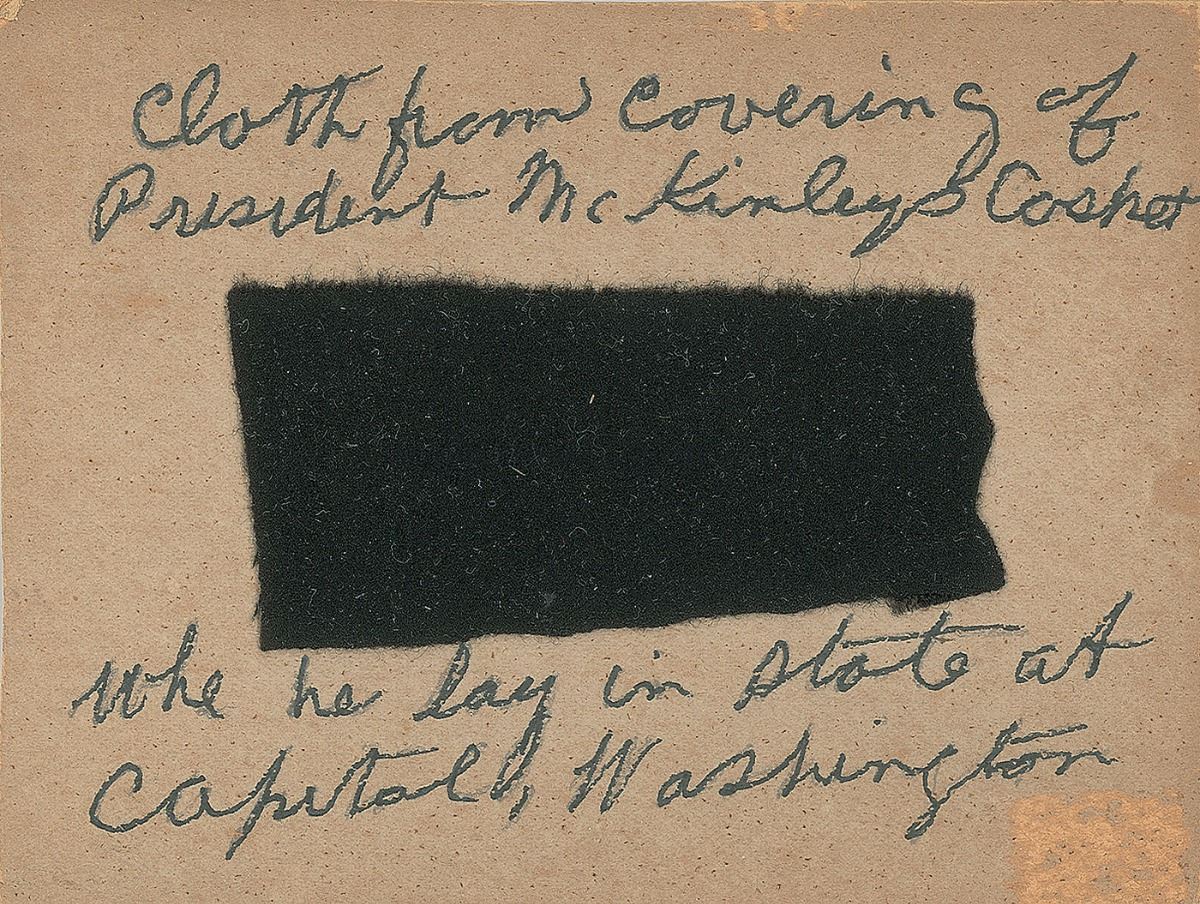 Cloth from covering of
President McKinleys Casket
Whe he lay in state at
Capital, Washington